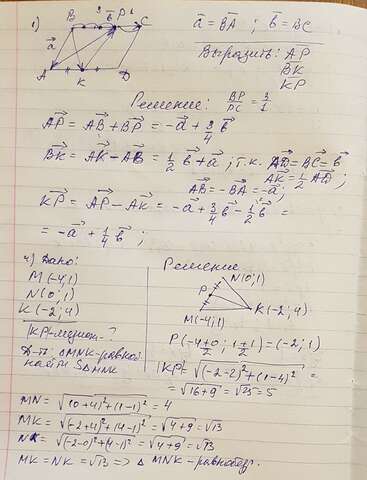 1)
B 3 b P 1 C
a
A K D
a⃗ = BA⃗ ; b⃗ = BC⃗
Выразить: AP⃗
BK⃗
KP⃗
Решение: BP/PC = 3/1
AP⃗ = AB⃗ + BP⃗ = -a⃗ + 3/4 b⃗
BK⃗ = AK⃗ - AB⃗ = 1/2 b⃗ + a⃗ ; т.к. AD⃗ = BC⃗ = b⃗
AK⃗ = 1/2 AD⃗ ;
AB⃗ = -BA⃗ = -a⃗ ;
KP⃗ = AP⃗ - AK⃗ = -a⃗ + 3/4 b⃗ - 1/2 b⃗ =
= -a⃗ + 1/4 b⃗ ;
4) Дано:
M (-4;1)
N (0;1)
K (-2;4)
|KP|-медиан-?
Д-ть: △MNK-равноб.
найти S△MNK
Решение
N(0;1)
P
K(-2;4)
M(-4;1)
P(-4+0/2 ; 1+1/2) = (-2;1)
|KP| = √(-2-2)² + (1-4)² =
= √16+9 = √25 = 5
MN = √(0+4)² + (1-1)² = 4
MK = √(-2+4)² + (4-1)² = √4+9 = √13
NK = √(-2-0)² + (4-1)² = √4+9 = √13
MK = NK = √13 => △ MNK - равнобедр.